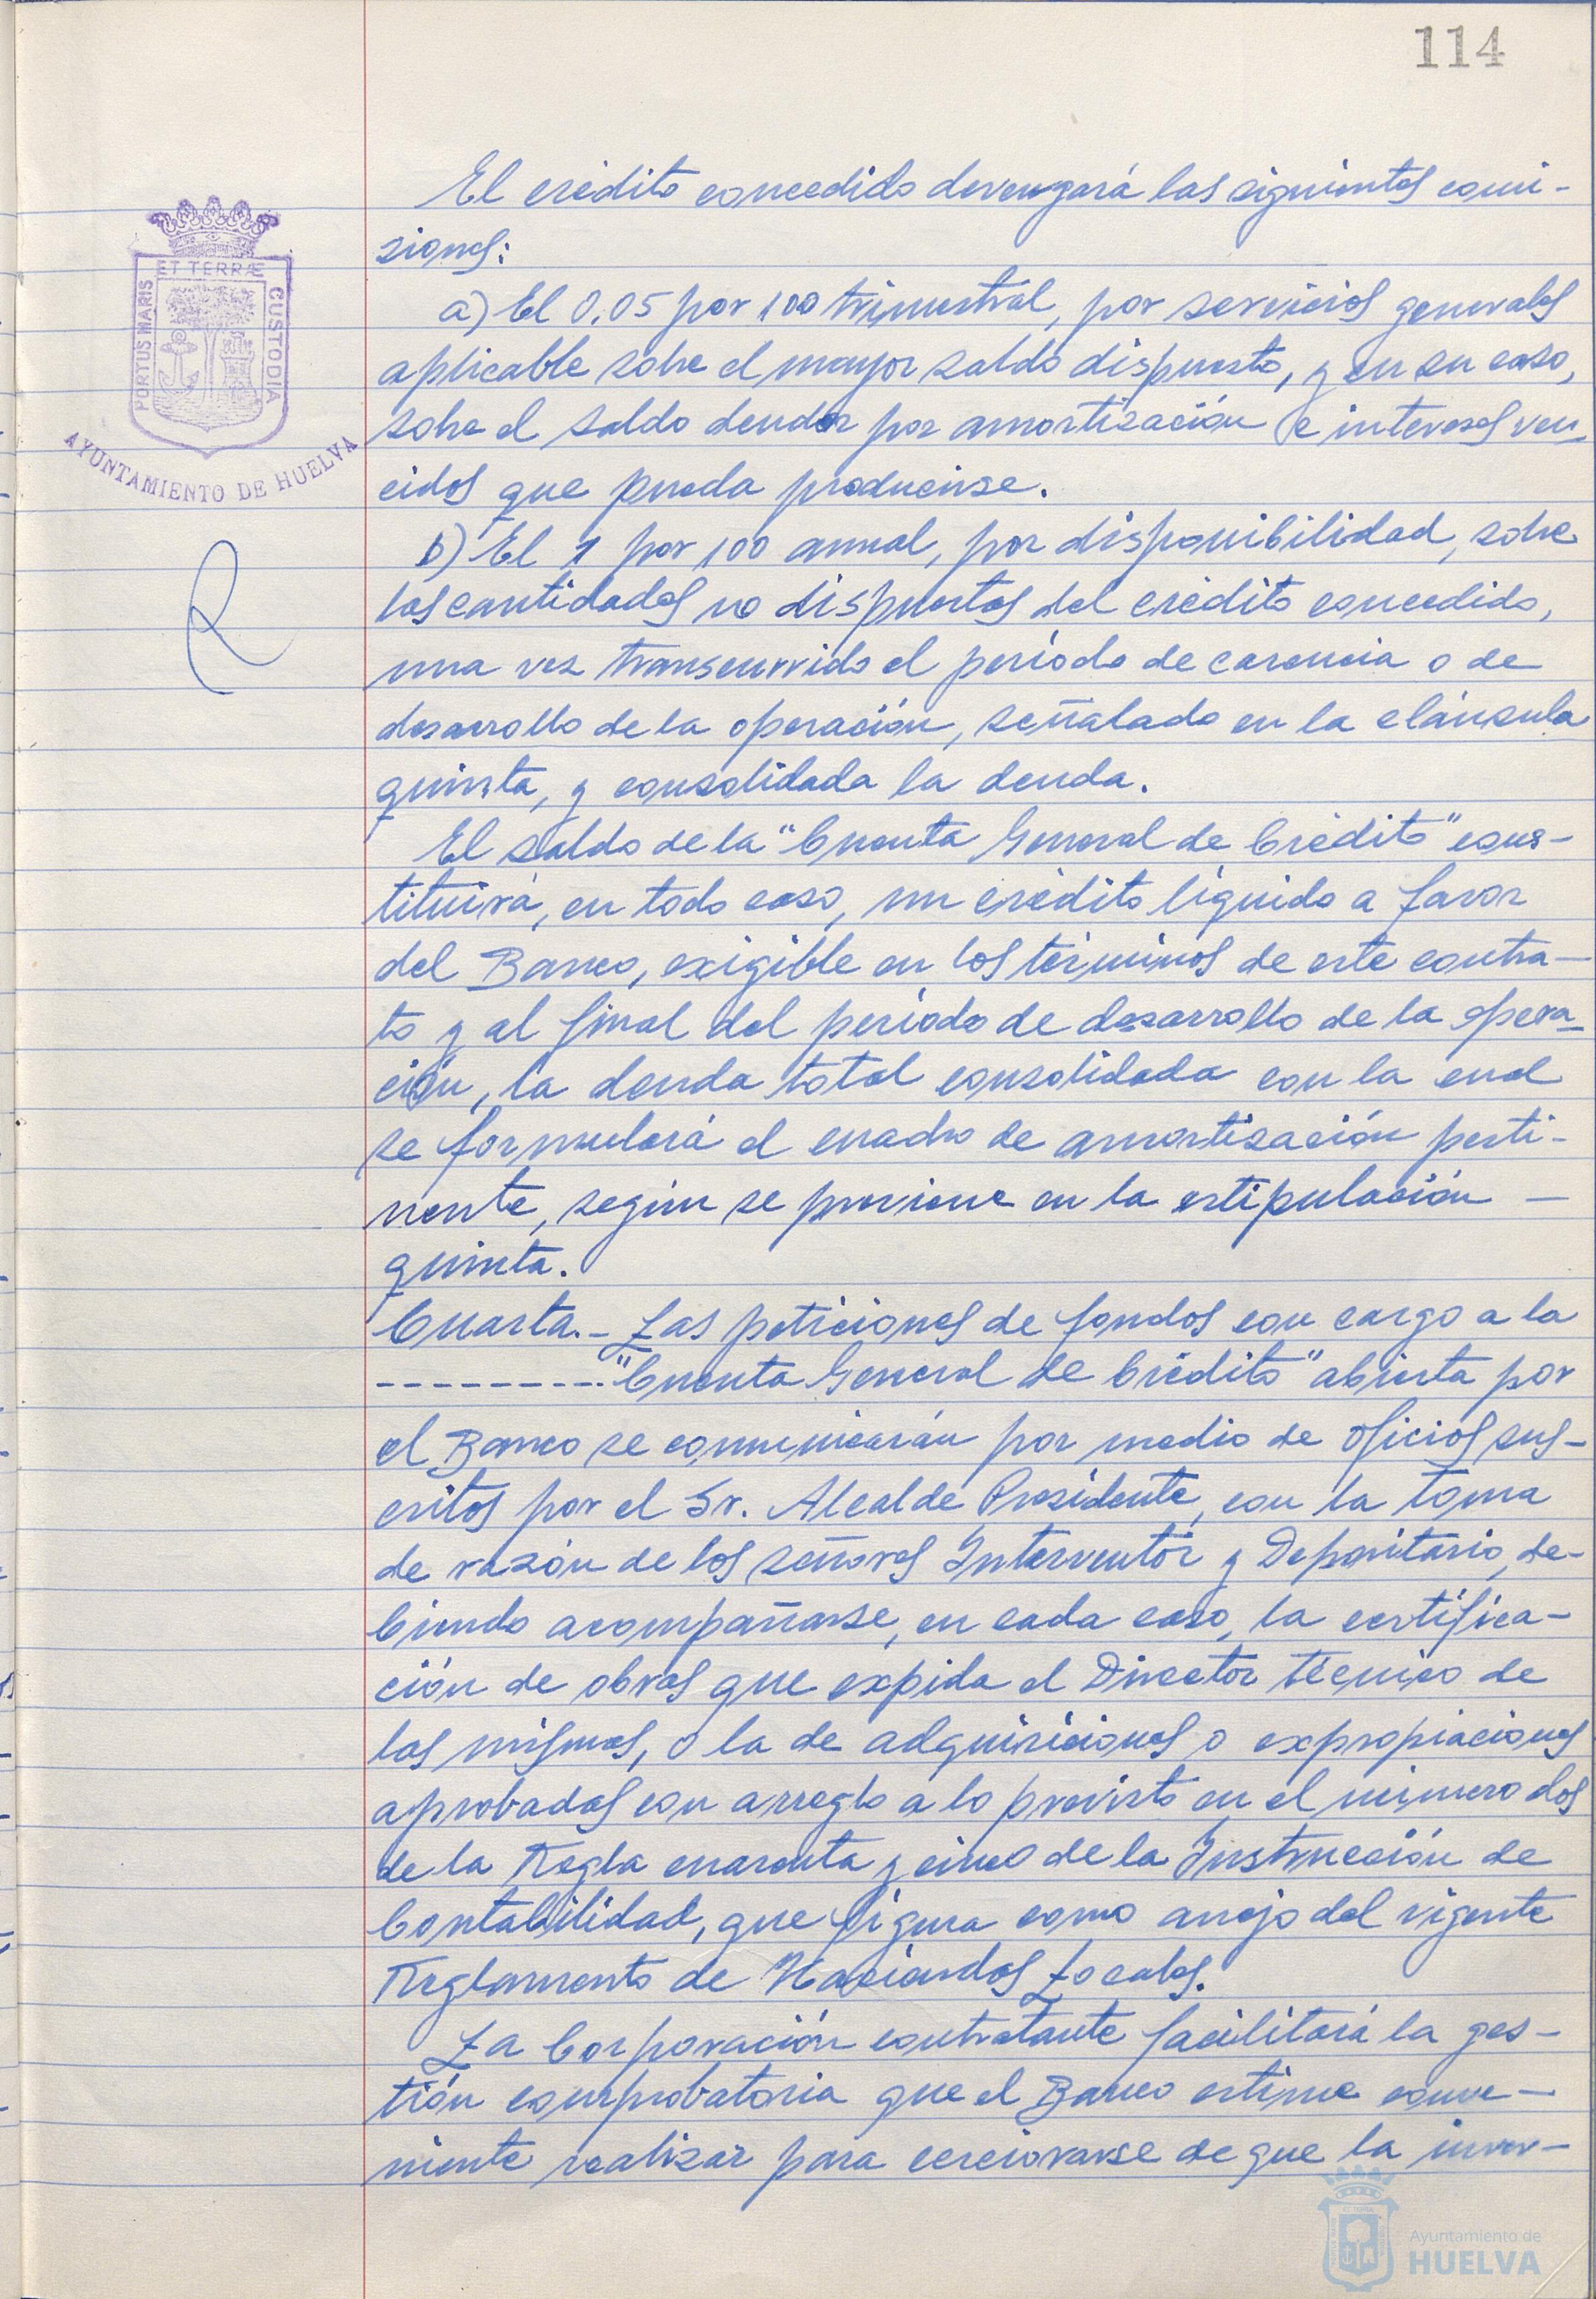 114
El crédito concedido devengará las siguientes comi-
siones:
a) El 0,05 por 100 trimestral, por servicios generales
aplicable sobre el mayor saldo dispuesto, y en su caso,
sobre el saldo deudor por amortización e intereses ven-
cidos que pueda producirse.
b) El 1 por 100 annual, por disponibilidad, sobre
las cantidades no dispuestas del crédito concedido,
una vez transcurrido el período de carencia o de
desarrollo de la operación, señalado en la cláusula
quinta, y consolidada la deuda.
El saldo de la "Cuenta General de Crédito" cons-
tituirá, en todo caso, un crédito líquido a favor
del Banco, exigible en los términos de este contra-
to y al final del período de desarrollo de la opera-
ción, la deuda total consolidada con la cual
se formulará el cuadro de amortización perti-
nente, según se previene en la estipulación —
quinta.
Cuarta.- Las peticiones de fondos con cargo a la
---------- "Cuenta General de Crédito" abierta por
el Banco se comunicarán por medio de oficios sus-
critos por el Sr. Alcalde Presidente, con la toma
de razón de los señores Interventor y Depositario, de-
biendo acompañarse, en cada caso, la certifica-
ción de obras que expida el Director técnico de
las mismas, o la de adquisiciones o expropiaciones
aprobadas con arreglo a lo previsto en el número dos
de la Regla cuarenta y cinco de la Instrucción de
Contabilidad, que figura como anejo del vigente
Reglamento de Haciendas Locales.
La Corporación contratante facilitará la ges-
tión comprobatoria que el Banco estime conve-
niente realizar para cerciorarse de que la inver-
PORTUS MARIS
ET TERRÆ
CUSTODIA
AYUNTAMIENTO DE HUELVA
Ayuntamiento de
HUELVA